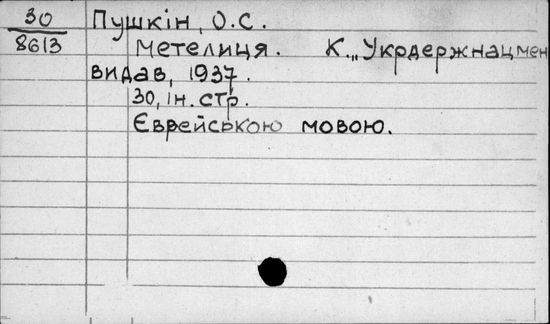 30
8613
Пушкін, О.С.
Метелиця. К. „Укрдержнацмен
видав, 1937.
30, ін. стр.
Єврейською мовою.